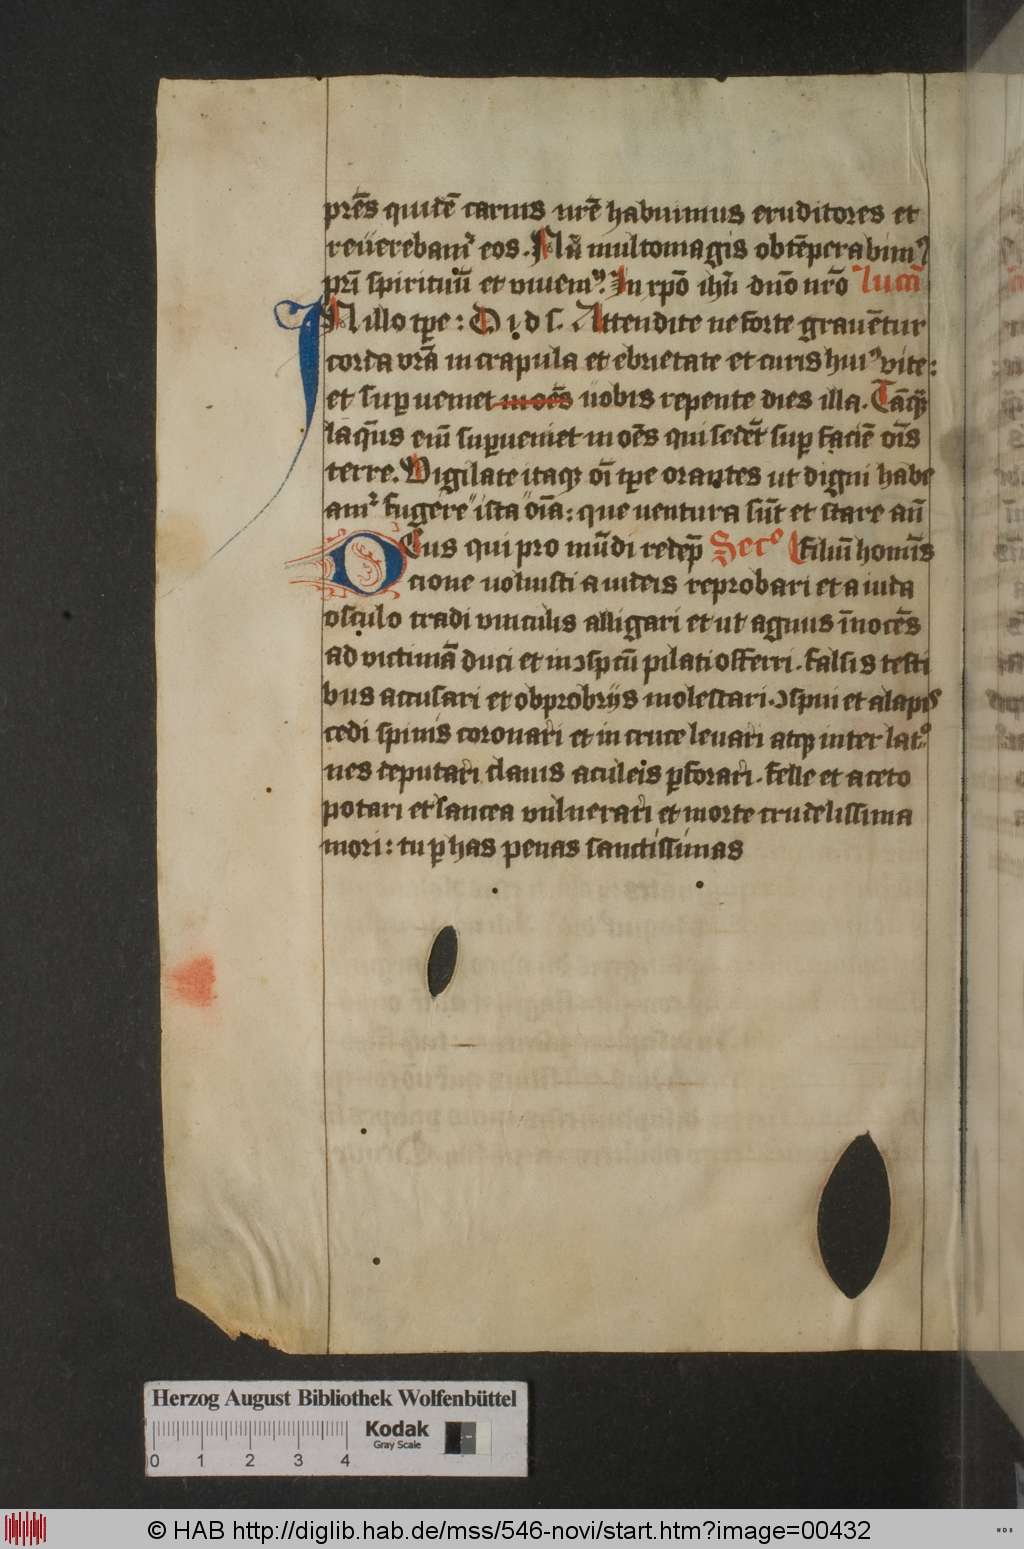 pr̄es quidē carnis nr̄e habuimus eruditores et
reūerebam᷑ eos. Nū multomagis obtēperabim⁹
pr̄i spirituū et viuem⁹. In xp̄o ih̄u dn̄o nr̄o Lucā
IN illo tp̄e: D i d s. Attendite ne forte grauētur
corda vr̄a in crapula et ebrietate et curis hui⁹ vite:
et suꝑueniet in oēs uobis repente dies illa. Tāꝙ
laq̄us eni᷑ suꝑueniet in oēs qui sedēt suꝑ faciē oīs
terre. Vigilate itaqꝫ oī tp̄e orantes ut digni habe
am᷑ fugere ista oīa: que uentura sūt et stare an̄
DEus qui pro mūdi redēp Sec° filiū homīs
tione uoluisti a iudeis reprobari et a iuda
osculo tradi vinculis alligari et ut agnus īnocēs
ad victimā duci et in ꝯspcū pilati offerri. falsis testi
bus accusari et obprobrijs molestari. ꝯspui et alapis
cedi spinis coronari et in cruce leuari atqꝫ inter lat°
nes deputari clauis aculeis ꝑforari. felle et aceto
potari et lancea vulnerari et morte crudelissima
mori: tu ꝑ has penas sanctissimas
Herzog August Bibliothek Wolfenbüttel
Kodak
Gray Scale
0 1 2 3 4
© HAB http://diglib.hab.de/mss/546-novi/start.htm?image=00432